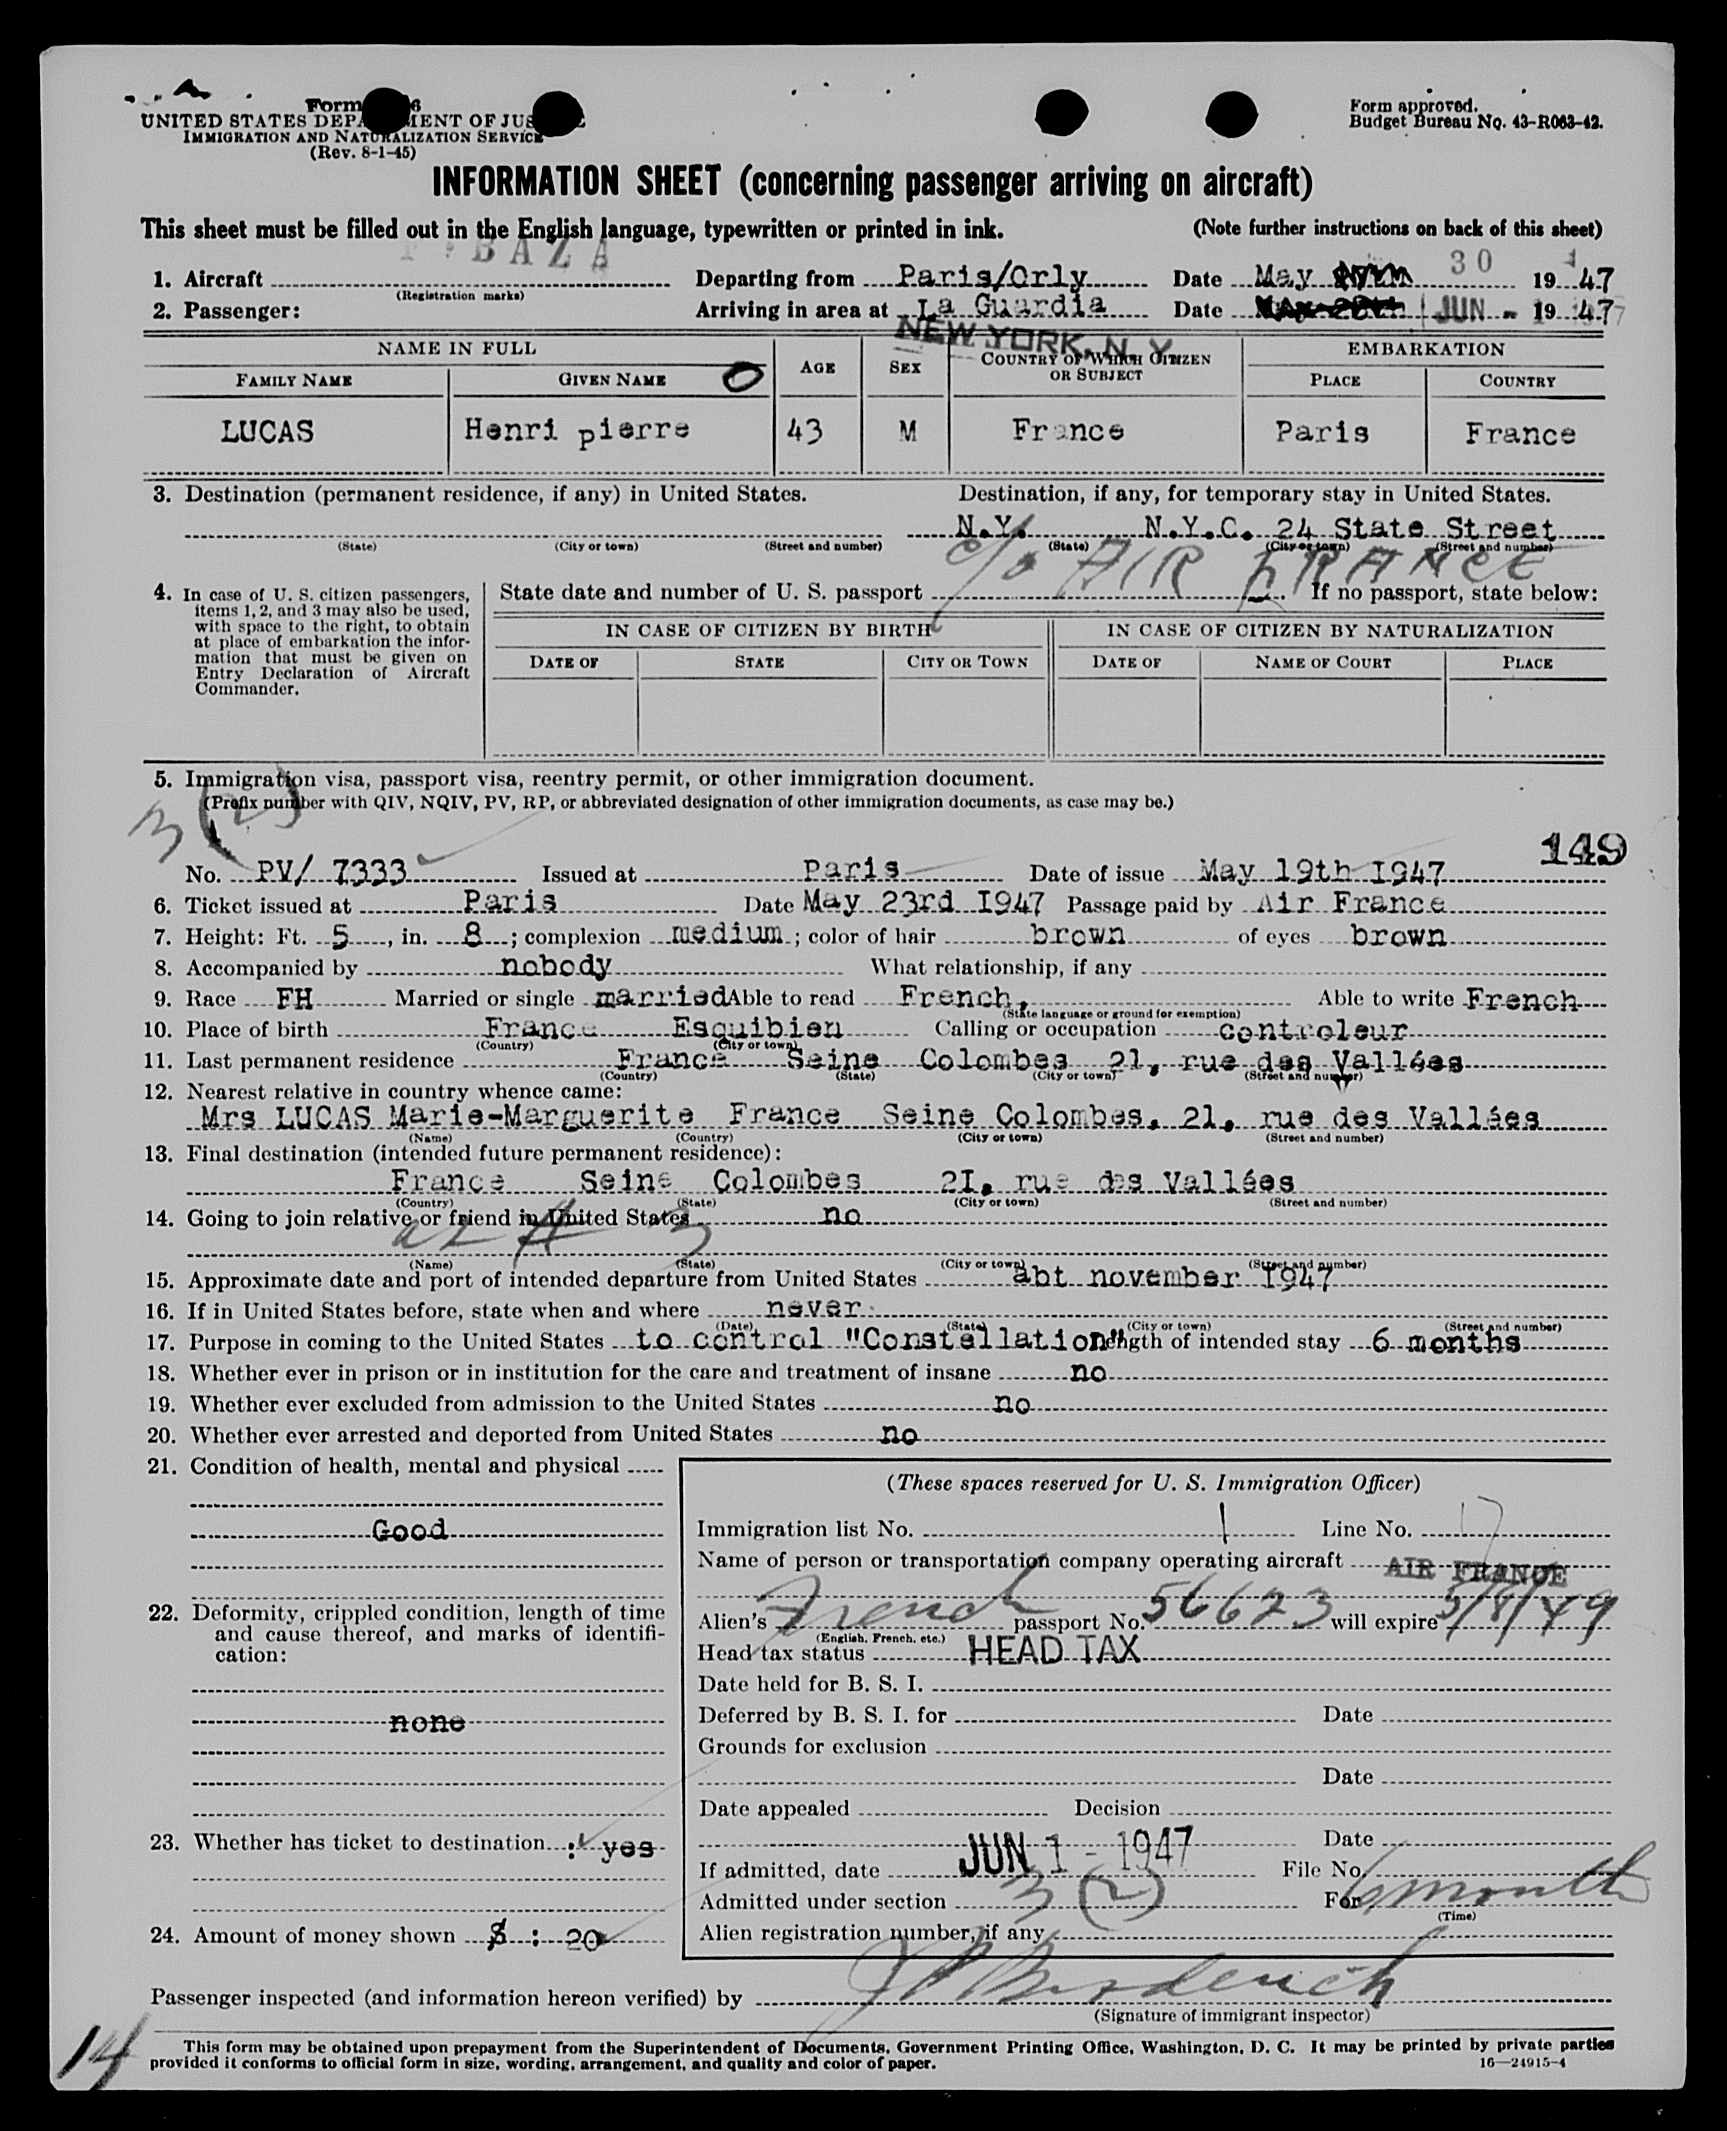 Form
UNITED STATES DEPARTMENT OF JUSTICE
IMMIGRATION AND NATURALIZATION SERVICE
(Rev. 8-1-45)
Form approved.
Budget Bureau No. 43-R063-42.
INFORMATION SHEET (concerning passenger arriving on aircraft)
This sheet must be filled out in the English language, typewritten or printed in ink. (Note further instructions on back of this sheet)
BAZA
1. Aircraft Departing from Paris/Orly Date May 30 1947
(Registration marks)
2. Passenger: Arriving in area at La Guardia Date JUN - 1 1947
NEW YORK, N. Y.
NAME IN FULL AGE SEX COUNTRY OF WHICH CITIZEN OR SUBJECT EMBARKATION
FAMILY NAME GIVEN NAME O PLACE COUNTRY
LUCAS Henri pierre 43 M France Paris France
3. Destination (permanent residence, if any) in United States. Destination, if any, for temporary stay in United States.
N.Y. N.Y.C. 24 State Street
(State) (City or town) (Street and number) (State) (City or town) (Street and number)
c/o AIR FRANCE
4. In case of U. S. citizen passengers, items 1, 2, and 3 may also be used, with space to the right, to obtain at place of embarkation the information that must be given on Entry Declaration of Aircraft Commander.
State date and number of U. S. passport If no passport, state below:
IN CASE OF CITIZEN BY BIRTH IN CASE OF CITIZEN BY NATURALIZATION
DATE OF STATE CITY OR TOWN DATE OF NAME OF COURT PLACE
5. Immigration visa, passport visa, reentry permit, or other immigration document.
(Prefix number with QIV, NQIV, PV, RP, or abbreviated designation of other immigration documents, as case may be.)
3 (2)
149
No. PV/ 7333 Issued at Paris Date of issue May 19th I947
6. Ticket issued at Paris Date May 23rd I947 Passage paid by Air France
7. Height: Ft. 5, in. 8; complexion medium; color of hair brown of eyes brown
8. Accompanied by nobody What relationship, if any
9. Race FH Married or single married Able to read French, Able to write French
(State language or ground for exemption)
10. Place of birth France Esquibien Calling or occupation controleur
(Country) (City or town)
11. Last permanent residence France Seine Colombes 21, rue des Vallées
(Country) (State) (City or town) (Street and number)
12. Nearest relative in country whence came:
Mrs LUCAS Marie-Marguerite France Seine Colombes, 21, rue des Vallées
(Name) (Country) (City or town) (Street and number)
13. Final destination (intended future permanent residence):
France Seine Colombes 2I, rue des Vallées
(Country) (State) (City or town) (Street and number)
14. Going to join relative or friend in United States no
(Name) (State) (City or town) (Street and number)
15. Approximate date and port of intended departure from United States abt november I947
16. If in United States before, state when and where never
(Date) (State) (City or town) (Street and number)
17. Purpose in coming to the United States to control "Constellation" Length of intended stay 6 months
18. Whether ever in prison or in institution for the care and treatment of insane no
19. Whether ever excluded from admission to the United States no
20. Whether ever arrested and deported from United States no
21. Condition of health, mental and physical
Good
22. Deformity, crippled condition, length of time and cause thereof, and marks of identification:
none
23. Whether has ticket to destination : yes
24. Amount of money shown $ : 20
(These spaces reserved for U. S. Immigration Officer)
Immigration list No. 1 Line No. 17
Name of person or transportation company operating aircraft AIR FRANCE
Alien's French passport No. 56623 will expire 5/8/49
(English, French, etc.)
Head tax status HEAD TAX
Date held for B. S. I.
Deferred by B. S. I. for Date
Grounds for exclusion
Date
Date appealed Decision
Date
If admitted, date JUN 1 - 1947 File No.
Admitted under section 3 (2) For 6 month
(Time)
Alien registration number, if any
Passenger inspected (and information hereon verified) by
(Signature of immigrant inspector)
14
This form may be obtained upon prepayment from the Superintendent of Documents, Government Printing Office, Washington, D. C. It may be printed by private parties
provided it conforms to official form in size, wording, arrangement, and quality and color of paper.
16—24915-4